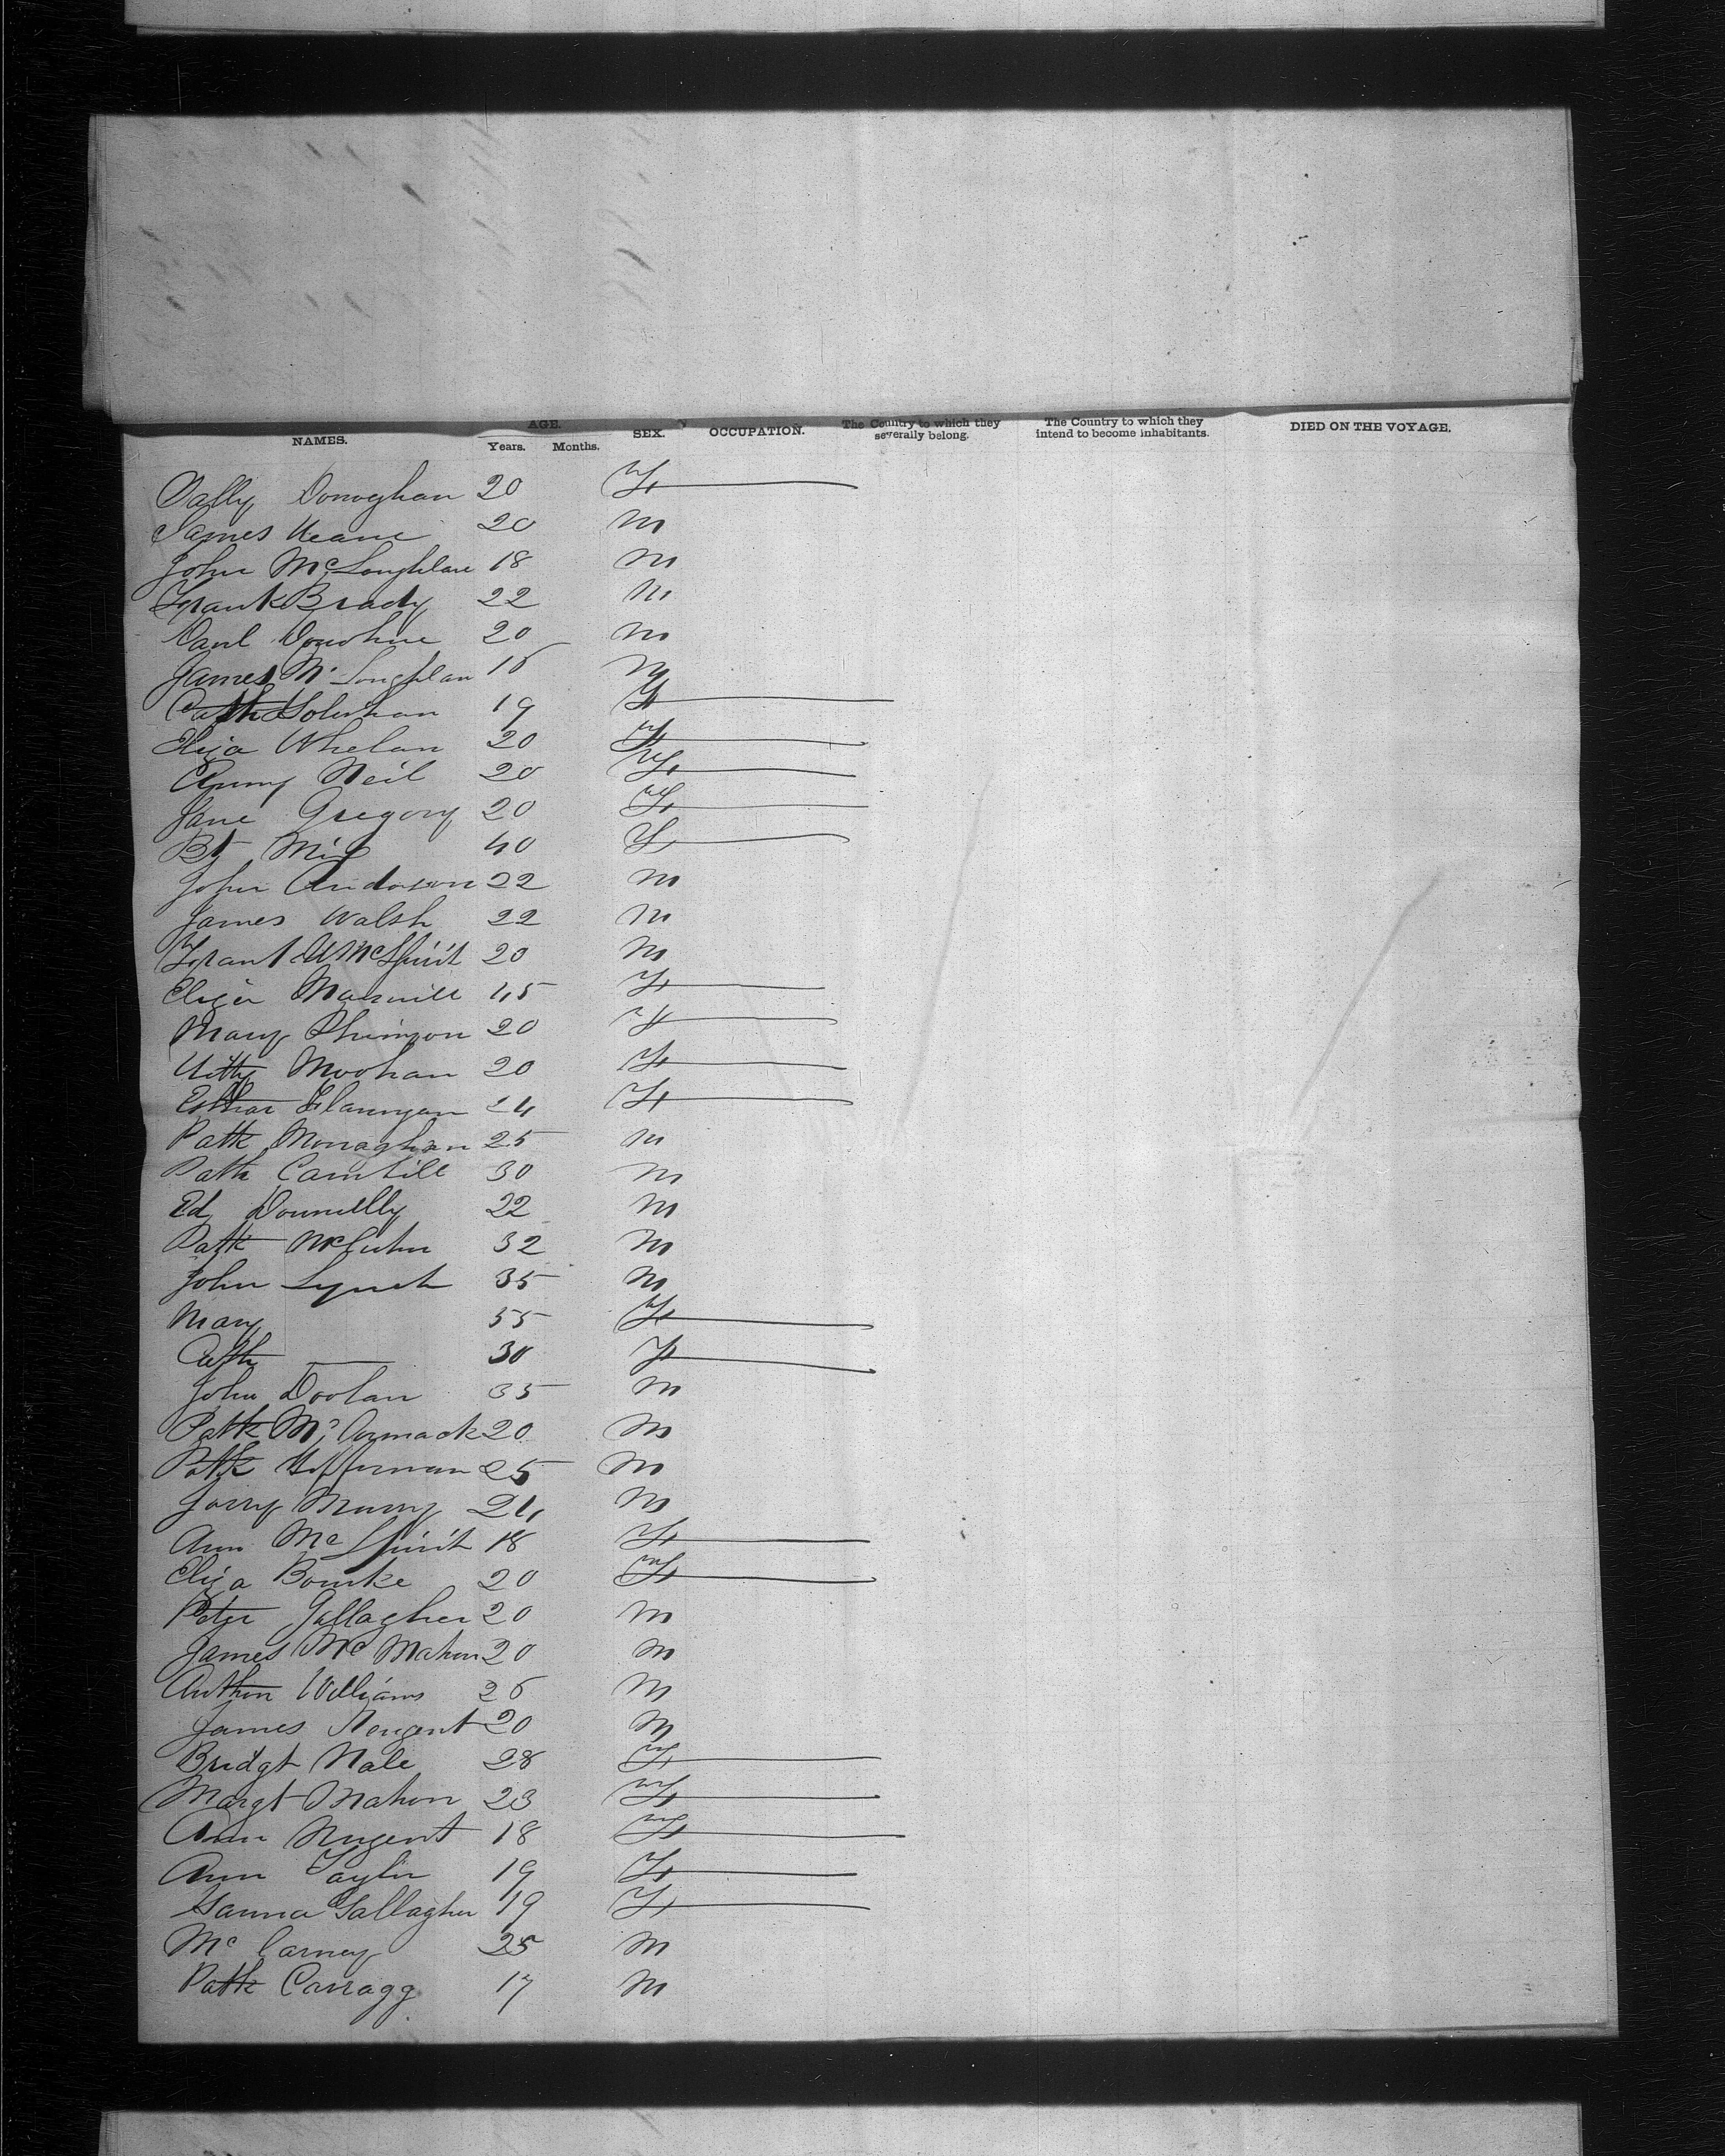 NAMES. AGE. Years. Months. SEX. OCCUPATION. The Country to which they severally belong. The Country to which they intend to become inhabitants. DIED ON THE VOYAGE.
Sally Donoghan 20 F
James Keane 20 M
John McLoughlan 18 M
Frank Brady 22 M
Danl Donohue 20 M
James Mc Loughlan 16 M
Cath Holohan 19 F
Eliza Whelan 20 F
Anny Neil 20 F
Jane Gregory 20 F
Bt 40 F
John Anderson 22 M
James Walsh 22 M
McSpirit 20 M
Eliza 45 F
Mary 20 F
Kitty Moohan 20 F
Esther Flannyan 24 F
Patk Monaghan 25 M
Patk Cantill 30 M
Ed Donnelly 22 M
Patk 32 M
John Lynch 35 M
Mary 55 F
Cath — 30 F
John Doolan 35 M
Patk McCormack 20 M
Patk Heffernan 25 M
Jerry Murry 24 M
Ann Mc Spirit 18 F
Eliza Bourke 20 F
Peter Gallagher 20 M
James Mc Mahon 20 M
Williams 26 M
James Nougent 20 M
Bridgt Nale 28 F
Margt Mahon 23 F
Ann Nugent 18 F
Ann Taylor 19 F
Hanna Gallagher 19 F
Mc Carney 25 M
Patk Carragg 17 M